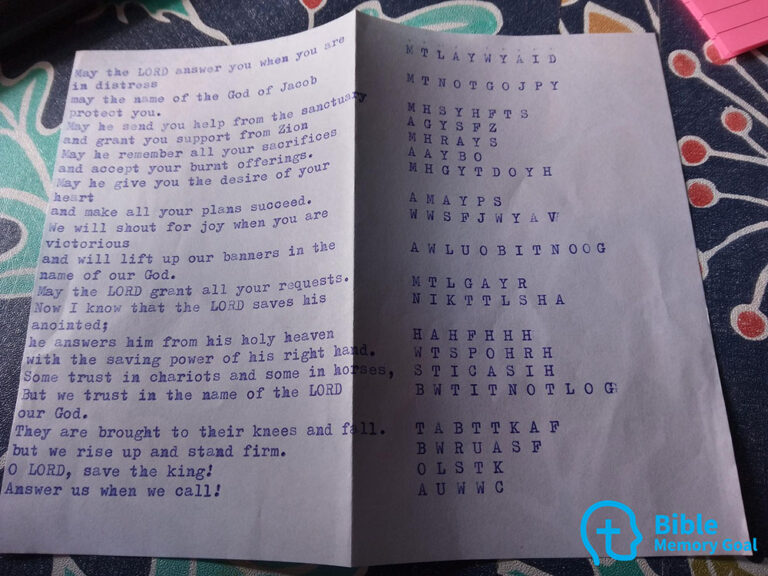 May the LORD answer you when you are
in distress
may the name of the God of Jacob
protect you.
May he send you help from the sanctuary
and grant you support from Zion
May he remember all your sacrifices
and accept your burnt offerings.
May he give you the desire of your
heart
and make all your plans succeed.
We will shout for joy when you are
victorious
and will lift up our banners in the
name of our God.
May the LORD grant all your requests.
Now I know that the LORD saves his
anointed;
he answers him from his holy heaven
with the saving power of his right hand.
Some trust in chariots and some in horses,
But we trust in the name of the LORD
our God.
They are brought to their knees and fall.
but we rise up and stand firm.
O LORD, save the king!
Answer us when we call!
M T L A Y W Y A I D
M T N O T G O J P Y
M H S Y H F T S
A G Y S F Z
M H R A Y S
A A Y B O
M H G Y T D O Y H
A M A Y P S
W W S F J W Y A V
A W L U O B I T N O O G
M T L G A Y R
N I K T T L S H A
H A H F H H H
W T S P O H R H
S T I C A S I H
B W T I T N O T L O G
T A B T T K A F
B W R U A S F
O L S T K
A U W W C
Bible
Memory Goal